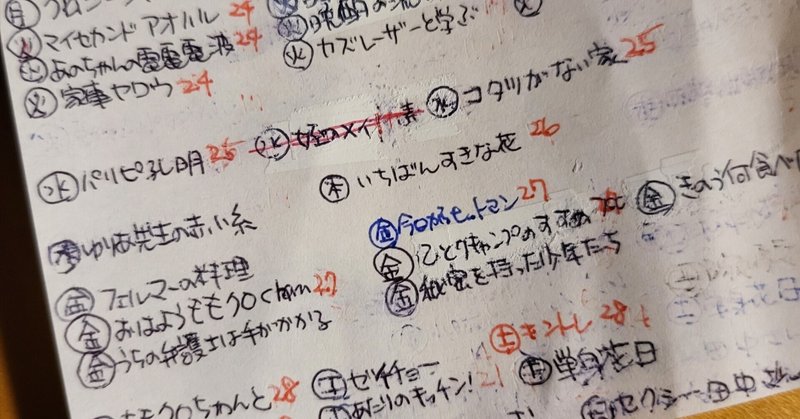 ㊊
㊋ マイセカンドアオハル 24
㊋ あのちゃんの電電電波 24
㊋ カズレーザーと学ぶ
㊋
㊋ 家事ヤロウ 24
㊌ コタツがない家 25
㊌ パリピ孔明 25
㊌ 姪のメイ
㊍ いちばんすきな花 26
㊍ ゆりあ先生の赤い糸
㊎ 今日からヒットマン 27
㊎ きのう何食べ
㊎ ひとりキャンプのすすめ
㊎ フェルマーの料理
㊎ 秘密を持った少年たち
㊎ おはようももクロChan 27
㊎ うちの弁護士は手がかかる
㊏ キントレ 28
ももクロちゃんと 28
㊏ ゼイチョー
㊏ 単身花日
㊏ あたりのキッチン! 21
㊏ セクシー田中さん